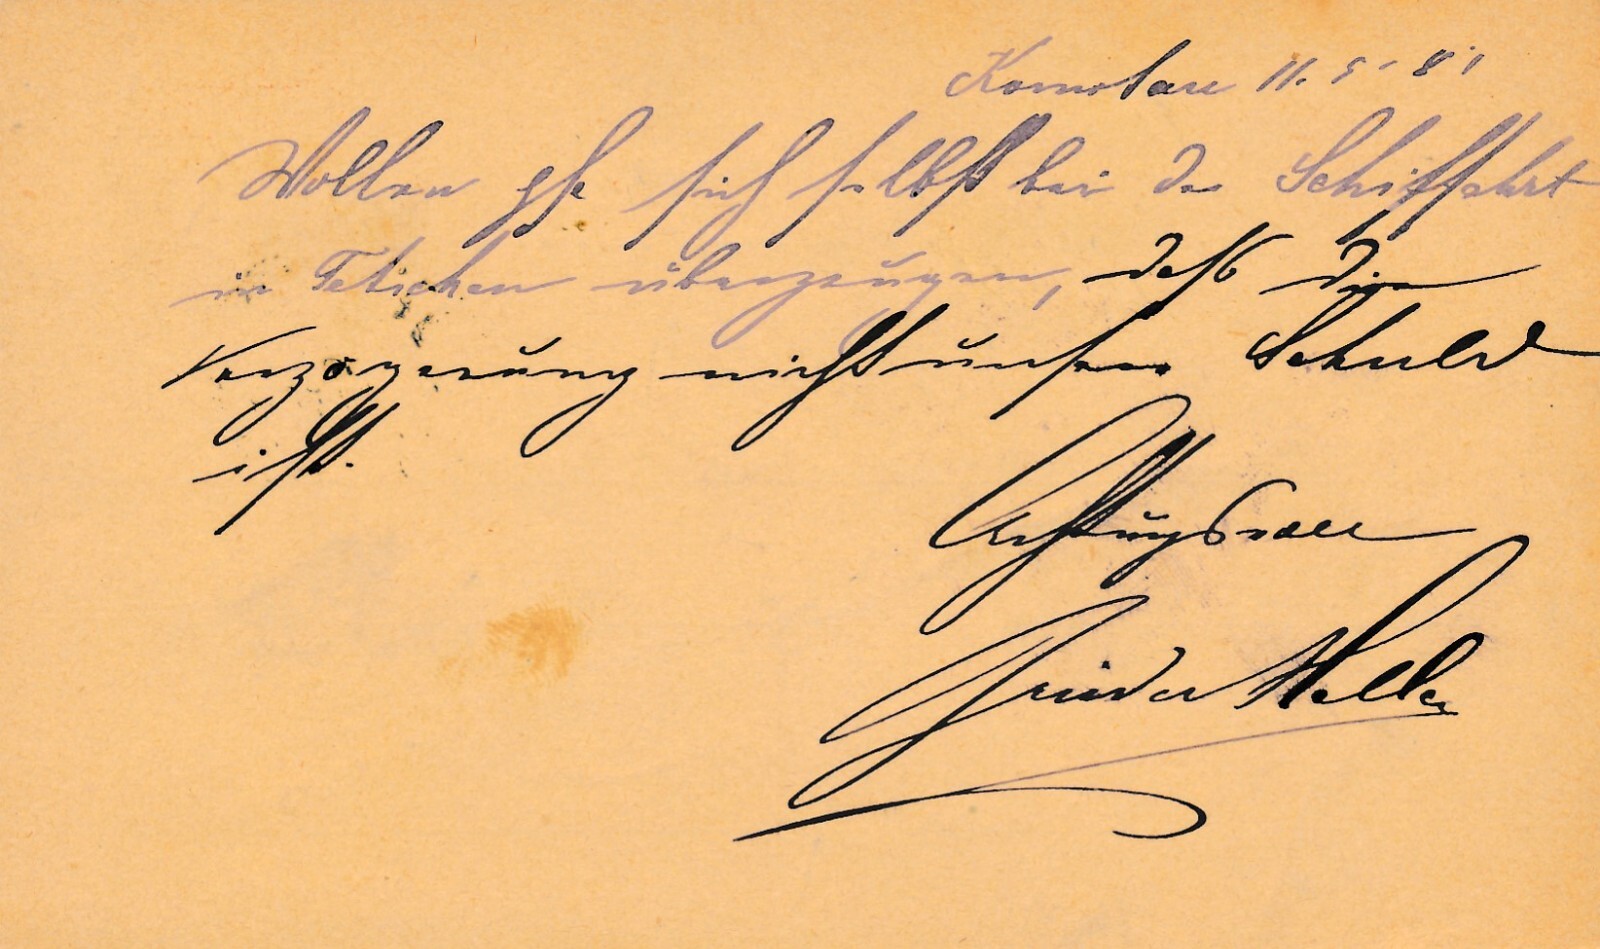 Komotau 11. 5. 81
Wollen gfe sich selbst bei der Schiffahrt
in Tetschen überzeugen, daß die
Verzögerung nicht unsere Schuld
ist.
Achtungsvoll
Heller